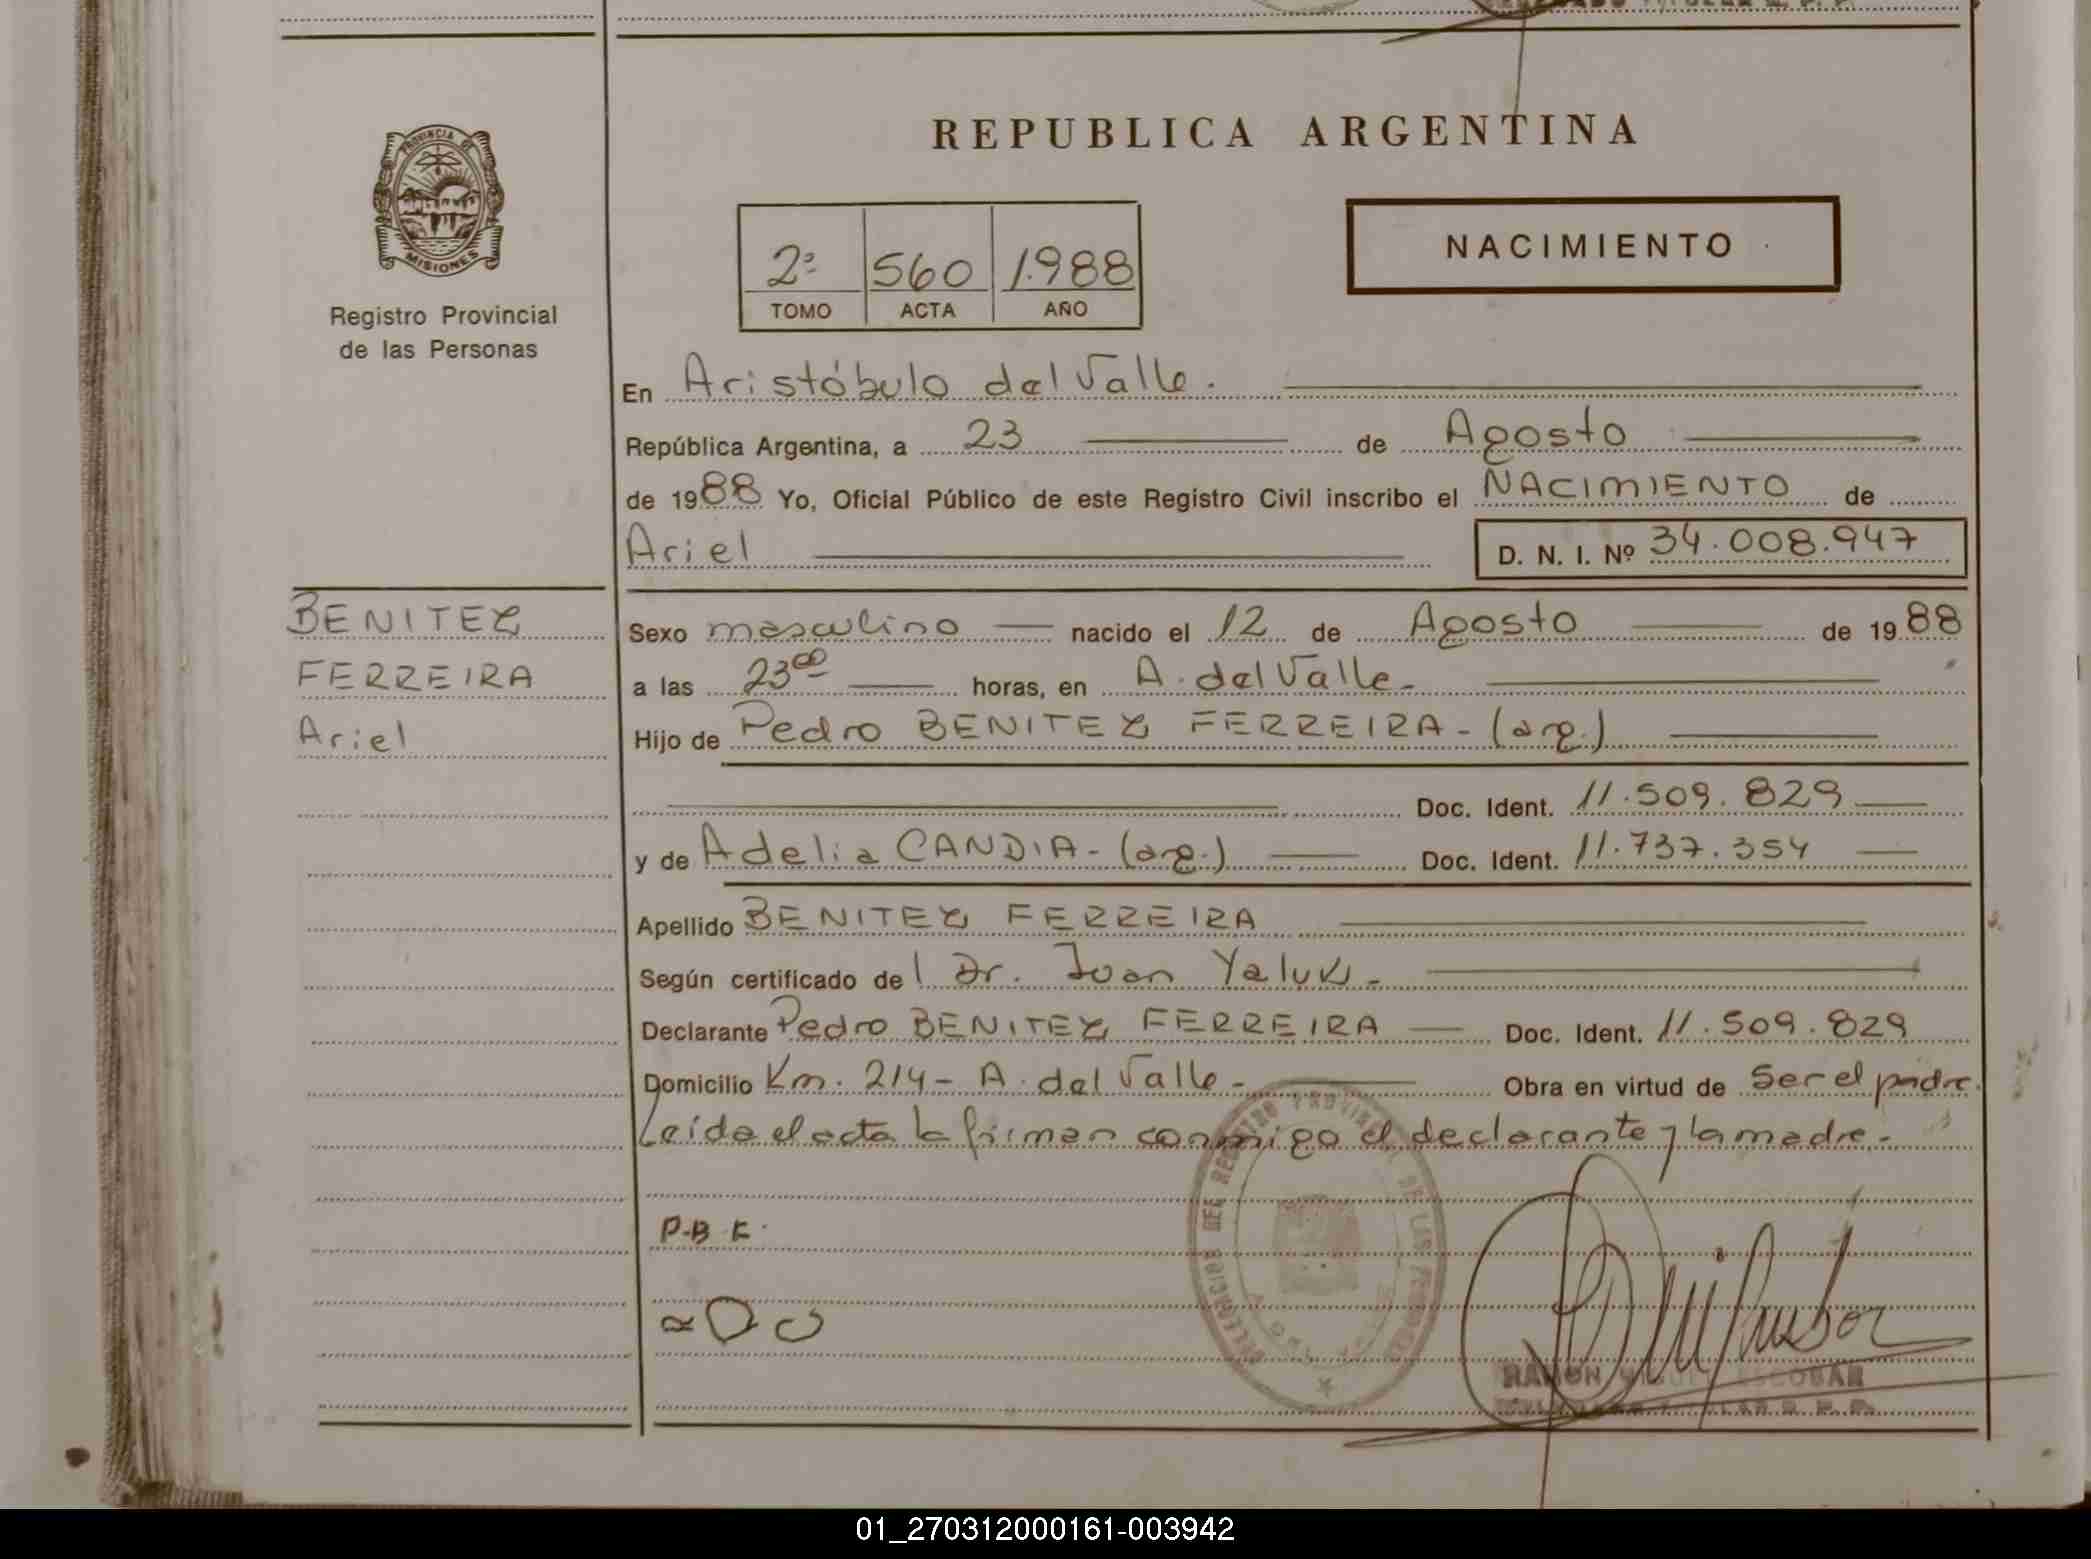 REPUBLICA ARGENTINA
PROVINCIA DE
MISIONES
Registro Provincial
de las Personas
2º 560 1.988
TOMO ACTA AÑO
NACIMIENTO
En Aristóbulo del Valle.
República Argentina, a 23 de Agosto
de 1988 Yo, Oficial Público de este Registro Civil inscribo el NACIMIENTO de
Ariel D. N. I. Nº 34.008.947
BENITEZ
FERREIRA
Ariel
Sexo masculino nacido el 12 de Agosto de 1988
a las 23⁰⁰ horas, en A. del Valle-
Hijo de Pedro BENITEZ FERREIRA- (arg.)
Doc. Ident. 11.509.829
y de Adelia CANDIA- (arg.) Doc. Ident. 11.737.354
Apellido BENITEZ FERREIRA
Según certificado del Dr. Juan Yaluk-
Declarante Pedro BENITEZ FERREIRA Doc. Ident. 11.509.829
Domicilio Km. 214- A. del Valle- Obra en virtud de Ser el padre.
Leída el acta la firman conmigo el declarante y la madre-
P.B F.
DELEGACION DEL REGISTRO PROVINCIAL DE LAS PERSONAS
RAMON MIGUEL ESCOBAR
01_270312000161-003942